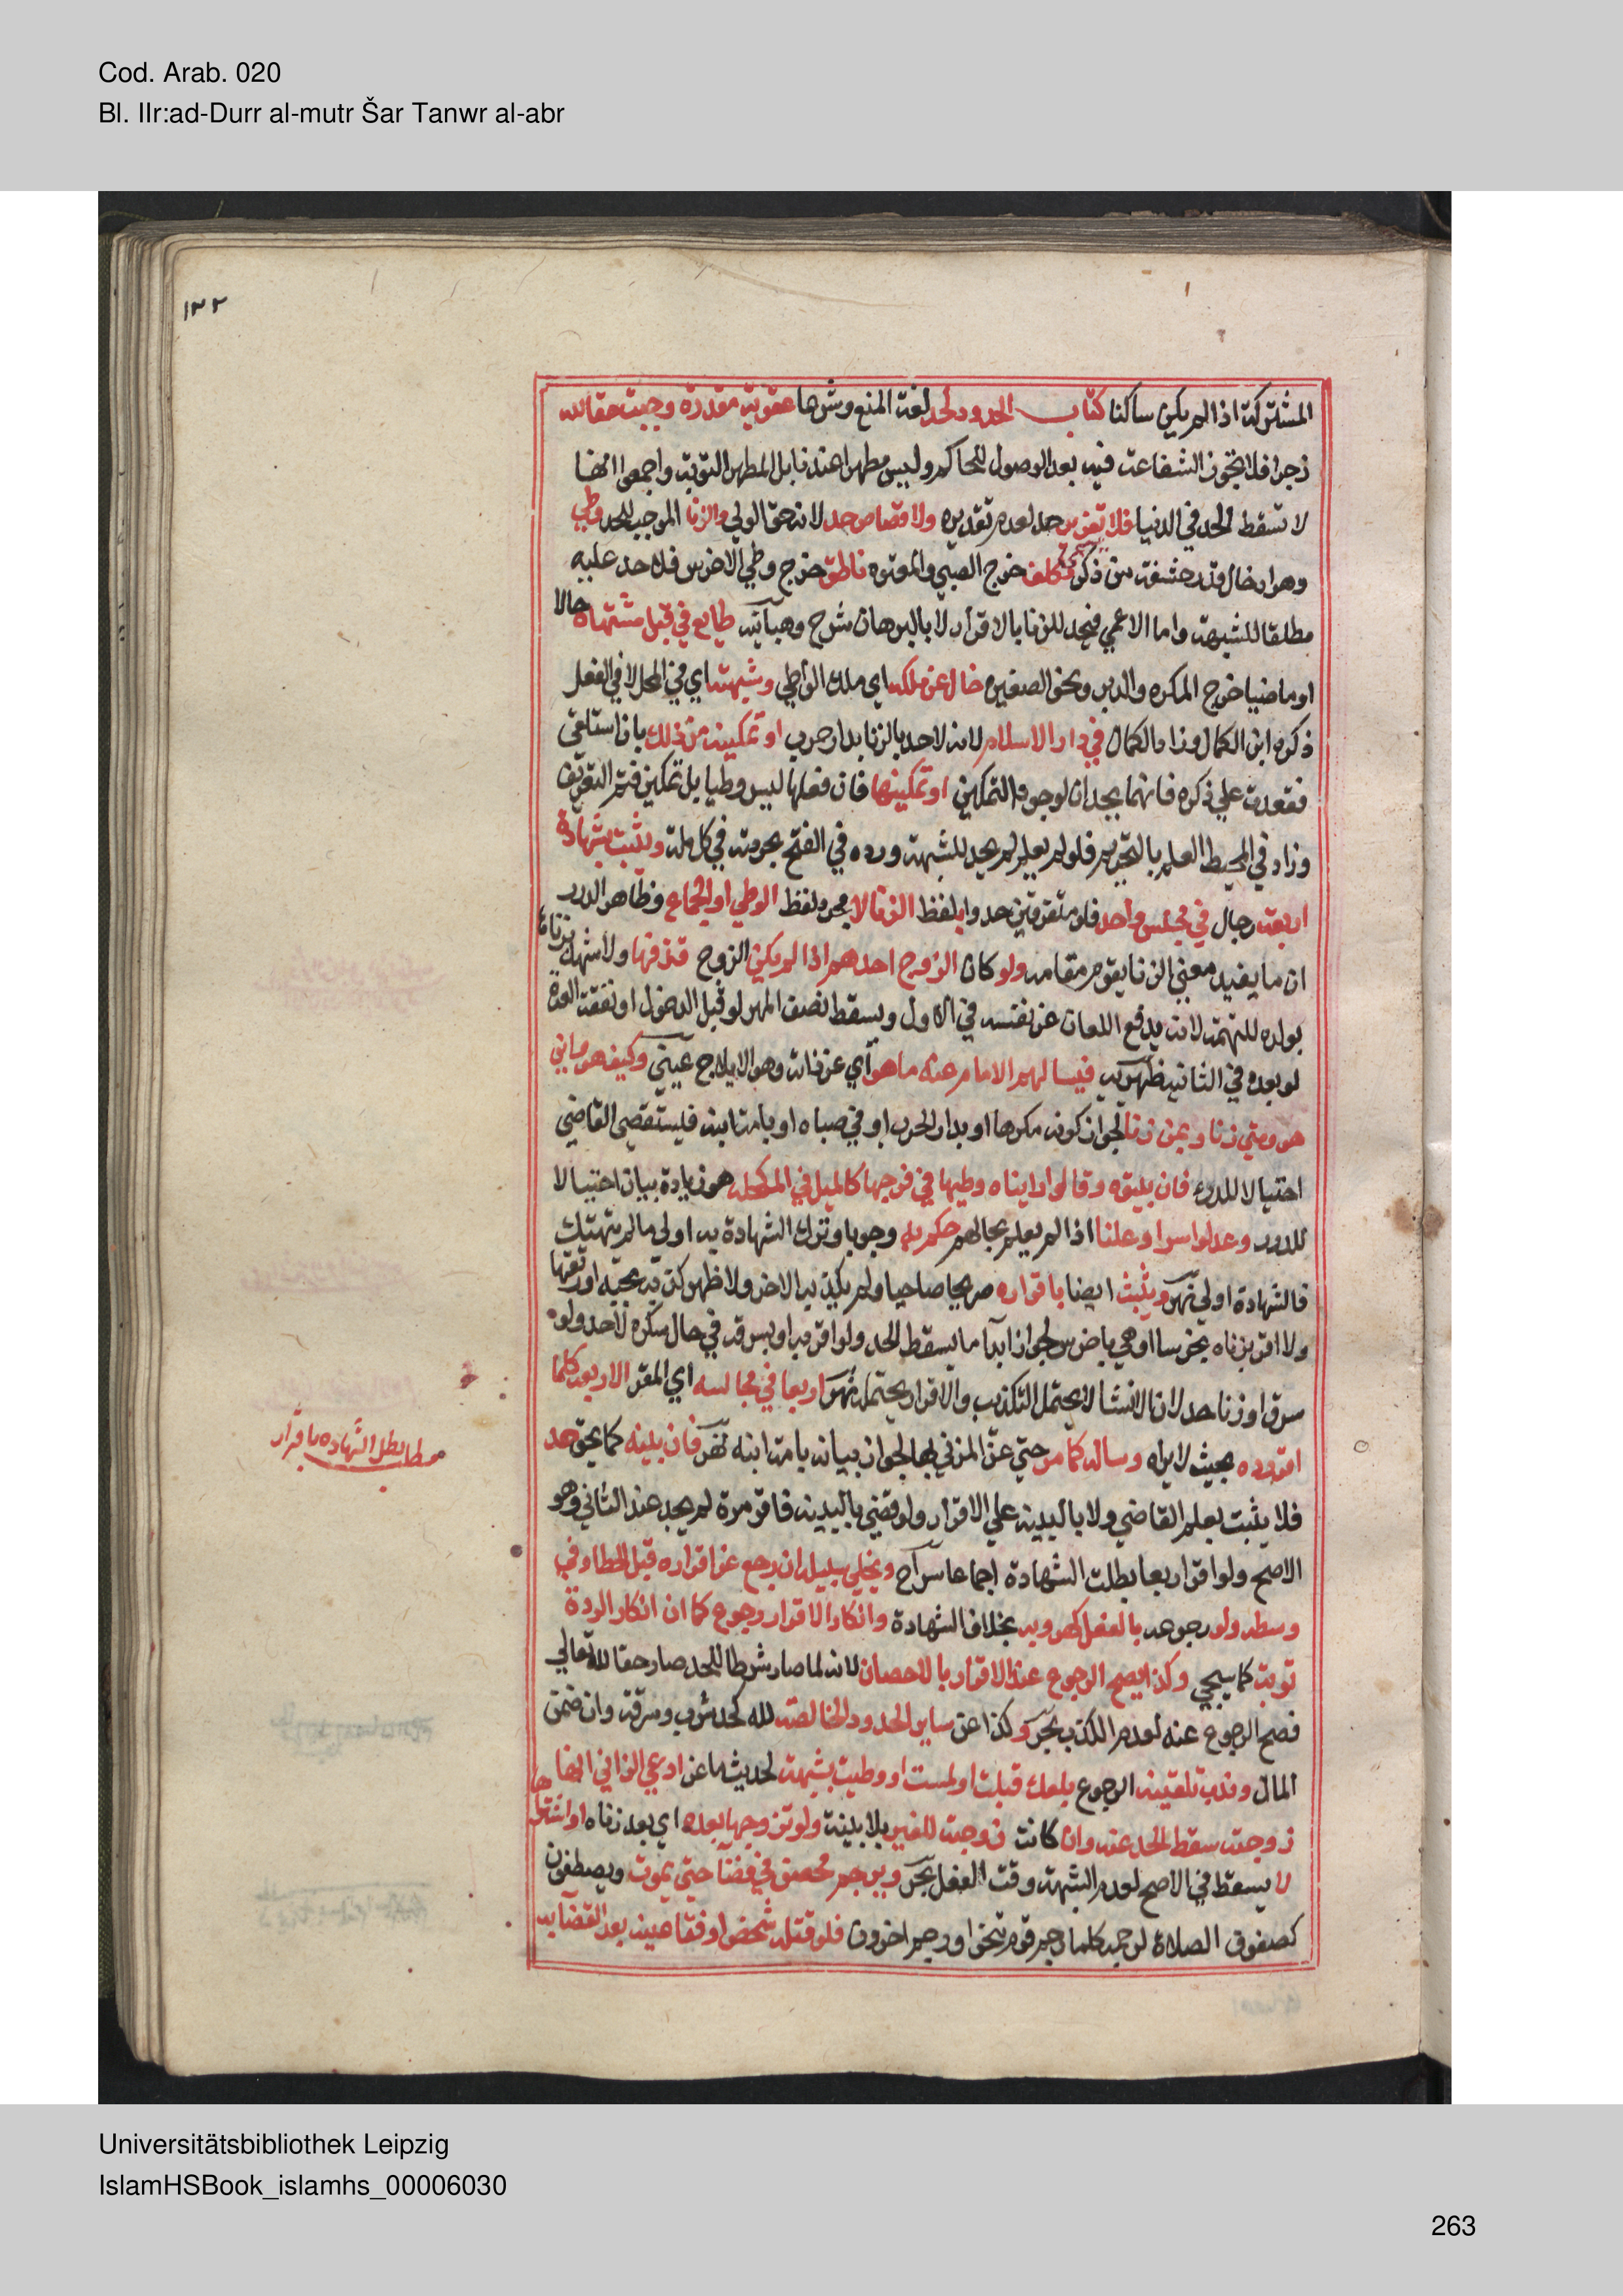 Cod. Arab. 020
Bl. IIr:ad-Durr al-mutr Šar Tanwr al-abr
١٣٢
المشتركة اذا لم يكن ساكنا كتاب الحدود الحد لغة المنع وشرعا عقوبة مقدرة وجبت حقا لله
زجرا فلا تجوز الشفاعة فيه بعد الوصول للحاكم وليس مطهرا عندنا بل المطهر التوبة واجمعوا انها
لا تسقط الحد في الدنيا فلا تعزير حد لعدم تقديره ولا قصاص حد لانه حق الولي والزنا الموجب للحد وطي
وهو ادخال قدر حشفة من ذكر مكلف خرج الصبي والمعتوه ناطق خرج وطي الاخرس فلا حد عليه
مطلقا للشبهة واما الاعمي فيحد للزنا بالاقرار لا بالبرهان شرح وهبانية طايع في قبل مشتهاة حالا
او ماضيا خرج المكره والدبر ونحو الصغيرة خال عن ملكه اي ملك الواطي وشبهته اي في المحل لا في الفعل
ذكره ابن الكمال وزاد الكمال في دار الاسلام لانه لا حد بالزنا بدار حرب او تمكينه من ذلك بان استلقى
فقعدت علي ذكره فانهما يحدان لوجود التمكين او تمكينها فان فعلها ليس وطيا بل تمكين فتم التعريف
وزاد في المحيط العلم بالتحريم فلو لم يعلم لم يحد للشبهة ورده في الفتح بحرمته في كل ملة ويثبت بشهادة
اربعة رجال في مجلس واحد فلو متفرقين حدوا بلفظ الزنا لا مجرد لفظ الوطي او الجماع وظاهر الدرر
ان ما يفيد معنى الزنا يقوم مقامه ولو كان الزوج احدهم اذا لم يكن الزوج قذفها ولا شهد بزناها
بولده للتهمة لانه يدفع اللعان عن نفسه في الاول ويسقط نصف المهر لو قبل الدخول او نفقة العدة
لو بعده في الثانية ظهيرية فيسالهم الامام عنه ما هو اي عن ذاته وهو الايلاج عيني وكيف هو واين
هو ومتى زنا وبمن زنا لجواز كونه مكرها او بدار الحرب او في صباه او بامة ابنه فليستقصي القاضي
احتيالا للدرء فان بينوه وقالوا راينا ه وطيها في فرجها كالميل في المكحلة هو زيادة بيان احتيالا
للدرء وعدلوا سرا وعلنا اذا لم يعلم بحالهم حكم به وجوبا وترك الشهادة به اولى ما لم يتهتك
فالشهادة اولى نهر ويثبت ايضا باقراره صريحا صاحيا ولم يكذبه الاخر ولا ظهر كذبه بجبه او رتقها
ولا اقر بزناه بخرسا او هي باخرس لجواز ابدا ما يسقط الحد ولو اقر به او بسرقة في حال سكره لا حد ولو
سرق او زنا حد لان الانشا لا يحتمل التكذيب والاقرار يحتمله نهر اربعا في مجالسه اي المقر الاربعة كلما
اقر رده بحيث لا يراه وساله كما مر حتي عن المزني بها لجواز بيانه بامة ابنه نهر فان بينه كما يحق حد
فلا يثبت بعلم القاضي ولا بالبينة علي الاقرار ولو قضي بالبينة فاقر مرة لم يحد عند الثاني وهو
الاصح ولو اقر اربعا بطلت الشهادة اجماعا سراج ويخلي سبيله ان رجع عن اقراره قبل الحد او في
وسطه ولو رجوعه بالفعل كهروبه بخلاف الشهادة وانكار الاقرار رجوع كما ان انكار الردة
توبة كما سيجي وكذا يصح الرجوع عن الاقرار بالاحصان لانه لما صار شرطا للحد صار حقا لله تعالي
فصح الرجوع عنه لعدم المكذب بحر وكذا عن ساير الحدود الخالصة لله كحد شرب وسرقة وان ضمن
المال وندب تلقينه الرجوع بلعلك قبلت او لمست او وطيت بشبهة لحديث ماعز ادعي الزاني انها
زوجته سقط الحد عنه وان كانت زوجة للغير بلا بينة ولو تزوجها بعده اي بعد زناه او اشتراها
لا يسقط في الاصح لعدم الشبهة وقت الفعل بحر ويرجم محصن في فضا حتى يموت ويصطفون
كصفوف الصلاة لرجمه كلما رجم قوم تنحوا ورجم اخرون فلو قتله شخص او فقا عينه بعد القضا به
مطلب بطل الشهاده باقرار
Universitätsbibliothek Leipzig
IslamHSBook_islamhs_00006030
263